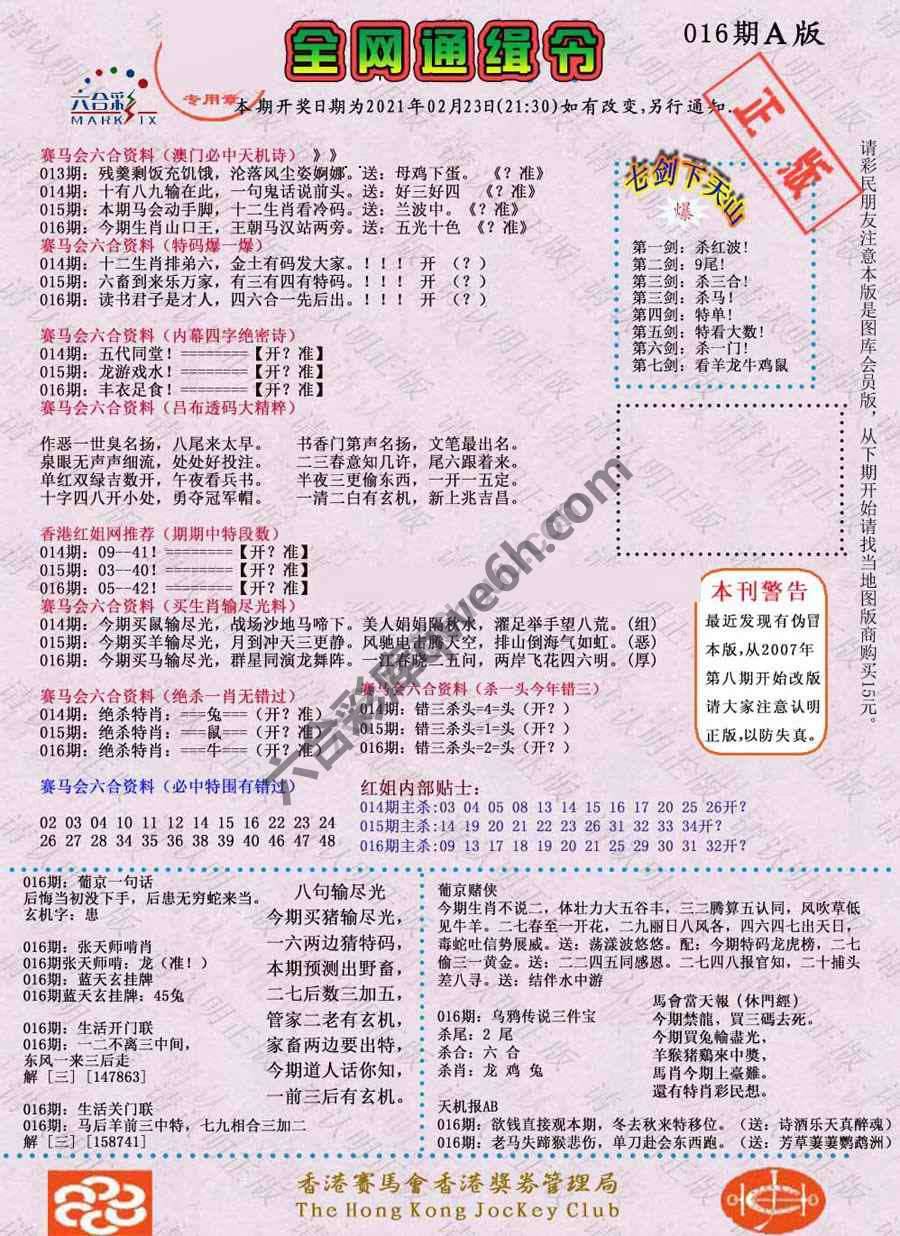 016期A版
全网通缉令
六合彩
MARK SIX
专用章
本期开奖日期为2021年02月23日(21:30)如有改变,另行通知.
正版
赛马会六合资料（澳门必中天机诗）》》
013期: 残羹剩饭充饥饿, 沦落风尘姿婀娜. 送: 母鸡下蛋。《? 准》
014期: 十有八九输在此, 一句鬼话说前头. 送: 好三好四 《? 准》
015期: 本期马会动手脚, 十二生肖看冷码. 送: 兰波中。《? 准》
016期: 今期生肖山口王, 王朝马汉站两旁. 送: 五光十色《? 准》
赛马会六合资料（特码爆一爆）
014期: 十二生肖排弟六, 金土有码发大家. ! ! ! 开 （? ）
015期: 六畜到来乐万家, 有三有四有特码. ! ! ! 开 （? ）
016期: 读书君子是才人, 四六合一先后出. ! ! ! 开 （? ）
七剑下天山
爆
第一剑: 杀红波!
第二剑: 9尾!
第三剑: 杀三合!
第三剑: 杀马!
第四剑: 特单!
第五剑: 特看大数!
第六剑: 杀一门!
第七剑: 看羊龙牛鸡鼠
请彩民朋友注意本版是图库会员版，从下期开始请找当地图版商购买15元。
赛马会六合资料（内幕四字绝密诗）
014期: 五代同堂! ========【开? 准】
015期: 龙游戏水! ========【开? 准】
016期: 丰衣足食! ========【开? 准】
赛马会六合资料（吕布透码大精粹）
作恶一世臭名扬, 八尾来太早。 书香门第声名扬, 文笔最出名。
泉眼无声声细流, 处处好投注。 二三春意知几许, 尾六跟着来。
单红双绿吉数开, 午夜看兵书。 半夜三更偷东西, 一开一五定。
十字四八开小处, 勇夺冠军帽。 一清二白有玄机, 新上兆吉昌。
香港红姐网推荐（期期中特段数）
014期: 09--41! ========【开? 准】
015期: 03--40! ========【开? 准】
016期: 05--42! ========【开? 准】
赛马会六合资料（买生肖输尽光料）
014期: 今期买鼠输尽光, 战场沙地马啼下。美人娟娟隔秋水, 濯足举手望八荒。(组)
015期: 今期买羊输尽光, 月到冲天三更静。风驰电击腾天空, 排山倒海气如虹。(恶)
016期: 今期买马输尽光, 群星同演龙舞阵。一江春晓二五问, 两岸飞花四六明。(厚)
本刊警告
最近发现有伪冒
本版,从2007年
第八期开始改版
请大家注意认明
正版,以防失真。
赛马会六合资料（绝杀一肖无错过）
014期: 绝杀特肖: ===兔===（开? 准）
015期: 绝杀特肖: ===鼠===（开? 准）
016期: 绝杀特肖: ===牛===（开? 准）
赛马会六合资料（杀一头今年错三）
014期: 错三杀头=4=头（开? ）
015期: 错三杀头=1=头（开? ）
016期: 错三杀头=2=头（开? ）
赛马会六合资料（必中特围有错过）
02 03 04 10 11 12 14 15 16 22 23 24
26 27 28 34 35 36 38 39 40 46 47 48
红姐内部贴士:
014期主杀:03 04 05 08 13 14 15 16 17 20 25 26开?
015期主杀:14 19 20 21 22 23 26 31 32 33 34开?
016期主杀:09 13 17 18 19 20 21 25 29 30 31 32开?
六合彩库qwe6h.com
016期: 葡京一句话
后悔当初没下手, 后患无穷蛇来当。
玄机字: 患
016期: 张天师啃肖
016期张天师啃: 龙（准! ）
016期: 蓝天玄挂牌
016期蓝天玄挂牌: 45兔
016期: 生活开门联
016期: 一二不离三中间,
东风一来三后走
解 [三] [147863]
016期: 生活关门联
016期: 马后羊前三中特, 七九相合三加二
解 [三] [158741]
八句输尽光
今期买猪输尽光,
一六两边猜特码,
本期预测出野畜,
二七后数三加五,
管家二老有玄机,
家畜两边要出特,
今期道人话你知,
一前三后有玄机。
葡京赌侠
今期生肖不说二, 体壮力大五谷丰, 三二腾算五认同, 风吹草低
见牛羊。二七春至一开花, 二九丽日八风各, 四六四七出天日,
毒蛇吐信势展威。送: 荡漾波悠悠。配: 今期特码龙虎榜, 二七
偷三一黄金。送: 二二四五同感恩。二七四八报官知, 二十捕头
差八寻。送: 结伴水中游
016期: 乌鸦传说三件宝
杀尾: 2 尾
杀合: 六 合
杀肖: 龙 鸡 兔
馬會當天報(休門經)
今期禁龍、買三碼去死。
今期買兔輸盡光,
羊猴猪鷄來中獎,
馬肖今期上臺難。
還有特肖彩民想。
天机报AB
016期: 欲钱直接观本期, 冬去秋来特移位。（送: 诗酒乐天真醉魂）
016期: 老马失蹄猴悲伤, 单刀赴会东西跑。（送: 芳草萋萋鹦鹉洲）
香港賽馬會香港獎券管理局
The Hong Kong JocKey Club